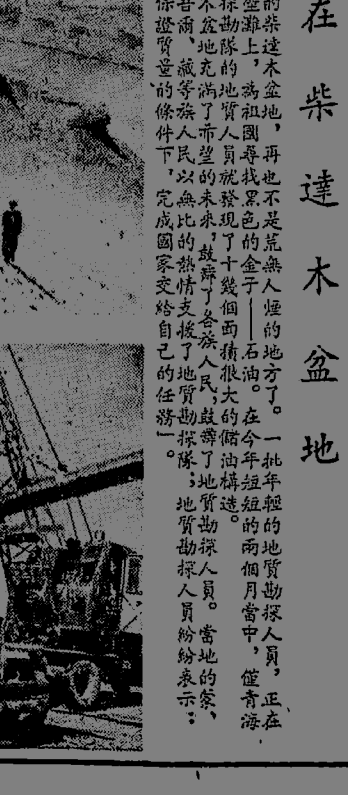 在柴達木盆地
的柴達木盆地，再也不是荒無人煙的地方了。一批年輕的地質勘探人員，正在
灘上，為祖國尋找黑色的金子——石油。在今年短短的兩個月當中，僅青海
探勘隊的地質人員就發現了十幾個面積很大的儲油構造。
木盆地充滿了希望的未來，鼓舞了各族人民，鼓舞了地質勘探人員。當地的蒙、
吾爾、藏等族人民以無比的熱情支援了地質勘探隊；地質勘探人員紛紛表示：
保證質量的條件下，完成國家交給自己的任務」。